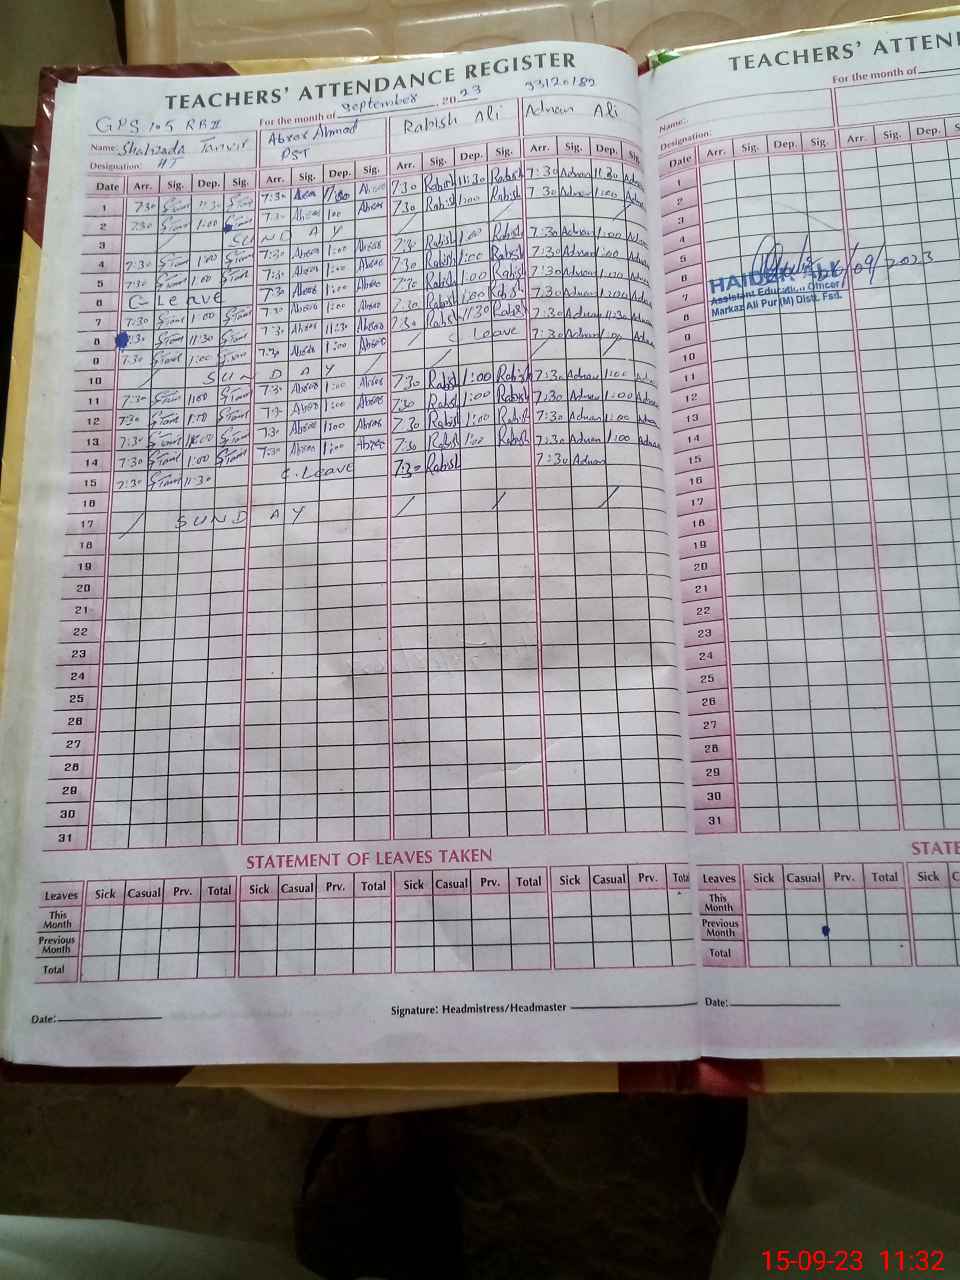 TEACHERS' ATTENDANCE REGISTER
For the month of September 2023 33120182
GPS 105 RB II
Name: Shahzada Tanvir Abrar Ahmad Rabish Ali Adnan Ali
Designation: HT PST
Date Arr. Sig. Dep. Sig. Arr. Sig. Dep. Sig. Arr. Sig. Dep. Sig. Arr. Sig. Dep. Sig.
1 7:30 11:30 7:30 Abrar 11:30 Abrar 7:30 Rabish 11:30 Rabish 7:30 Adnan 11:30 Adnan
2 7:30 1:00 7:30 Abrar 1:00 Abrar 7:30 Rabish 1:00 Rabish 7:30 Adnan 1:00 Adnan
3 SUNDAY
4 7:30 1:00 7:30 Abrar 1:00 Abrar 7:30 Rabish 1:00 Rabish 7:30 Adnan 1:00 Adnan
5 7:30 1:00 7:30 Abrar 1:00 Abrar 7:30 Rabish 1:00 Rabish 7:30 Adnan 1:00 Adnan
6 C-Leave 7:30 Abrar 1:00 Abrar 7:30 Rabish 1:00 Rabish 7:30 Adnan 1:00 Adnan
7 7:30 1:00 7:30 Abrar 1:00 Abrar 7:30 Rabish 1:00 Rabish 7:30 Adnan 1:00 Adnan
8 7:30 11:30 7:30 Abrar 11:30 Abrar 7:30 Rabish 11:30 Rabish 7:30 Adnan 11:30 Adnan
9 7:30 1:00 7:30 Abrar 1:00 Abrar C Leave 7:30 Adnan 1:00 Adnan
10 SUNDAY
11 7:30 1:00 7:30 Abrar 1:00 Abrar 7:30 Rabish 1:00 Rabish 7:30 Adnan 1:00 Adnan
12 7:30 1:00 7:30 Abrar 1:00 Abrar 7:30 Rabish 1:00 Rabish 7:30 Adnan 1:00 Adnan
13 7:30 1:00 7:30 Abrar 1:00 Abrar 7:30 Rabish 1:00 Rabish 7:30 Adnan 1:00 Adnan
14 7:30 1:00 7:30 Abrar 1:00 Abrar 7:30 Rabish 1:00 Rabish 7:30 Adnan 1:00 Adnan
15 7:30 11:30 C.Leave 7:30 Rabish 7:30 Adnan
16
17 SUNDAY
18
19
20
21
22
23
24
25
26
27
28
29
30
31
STATEMENT OF LEAVES TAKEN
Leaves Sick Casual Prv. Total Sick Casual Prv. Total Sick Casual Prv. Total Sick Casual Prv.
This Month
Previous Month
Total
Date:
Signature: Headmistress/Headmaster
TEACHERS'
For the month of
Name:
Designation:
Date Arr. Sig. Dep. Sig. Arr. Sig. Dep.
1
2
3
4
5
6
7
8
9
10
11
12
13
14
15
16
17
18
19
20
21
22
23
24
25
26
27
28
29
30
31
/09/2023
Assistant Education Officer
Markaz Ali Pur (M) Distt. Fsd.
Leaves Sick Casual Prv. Total Sick
This Month
Previous Month
Total
Date:
15-09-23 11:32